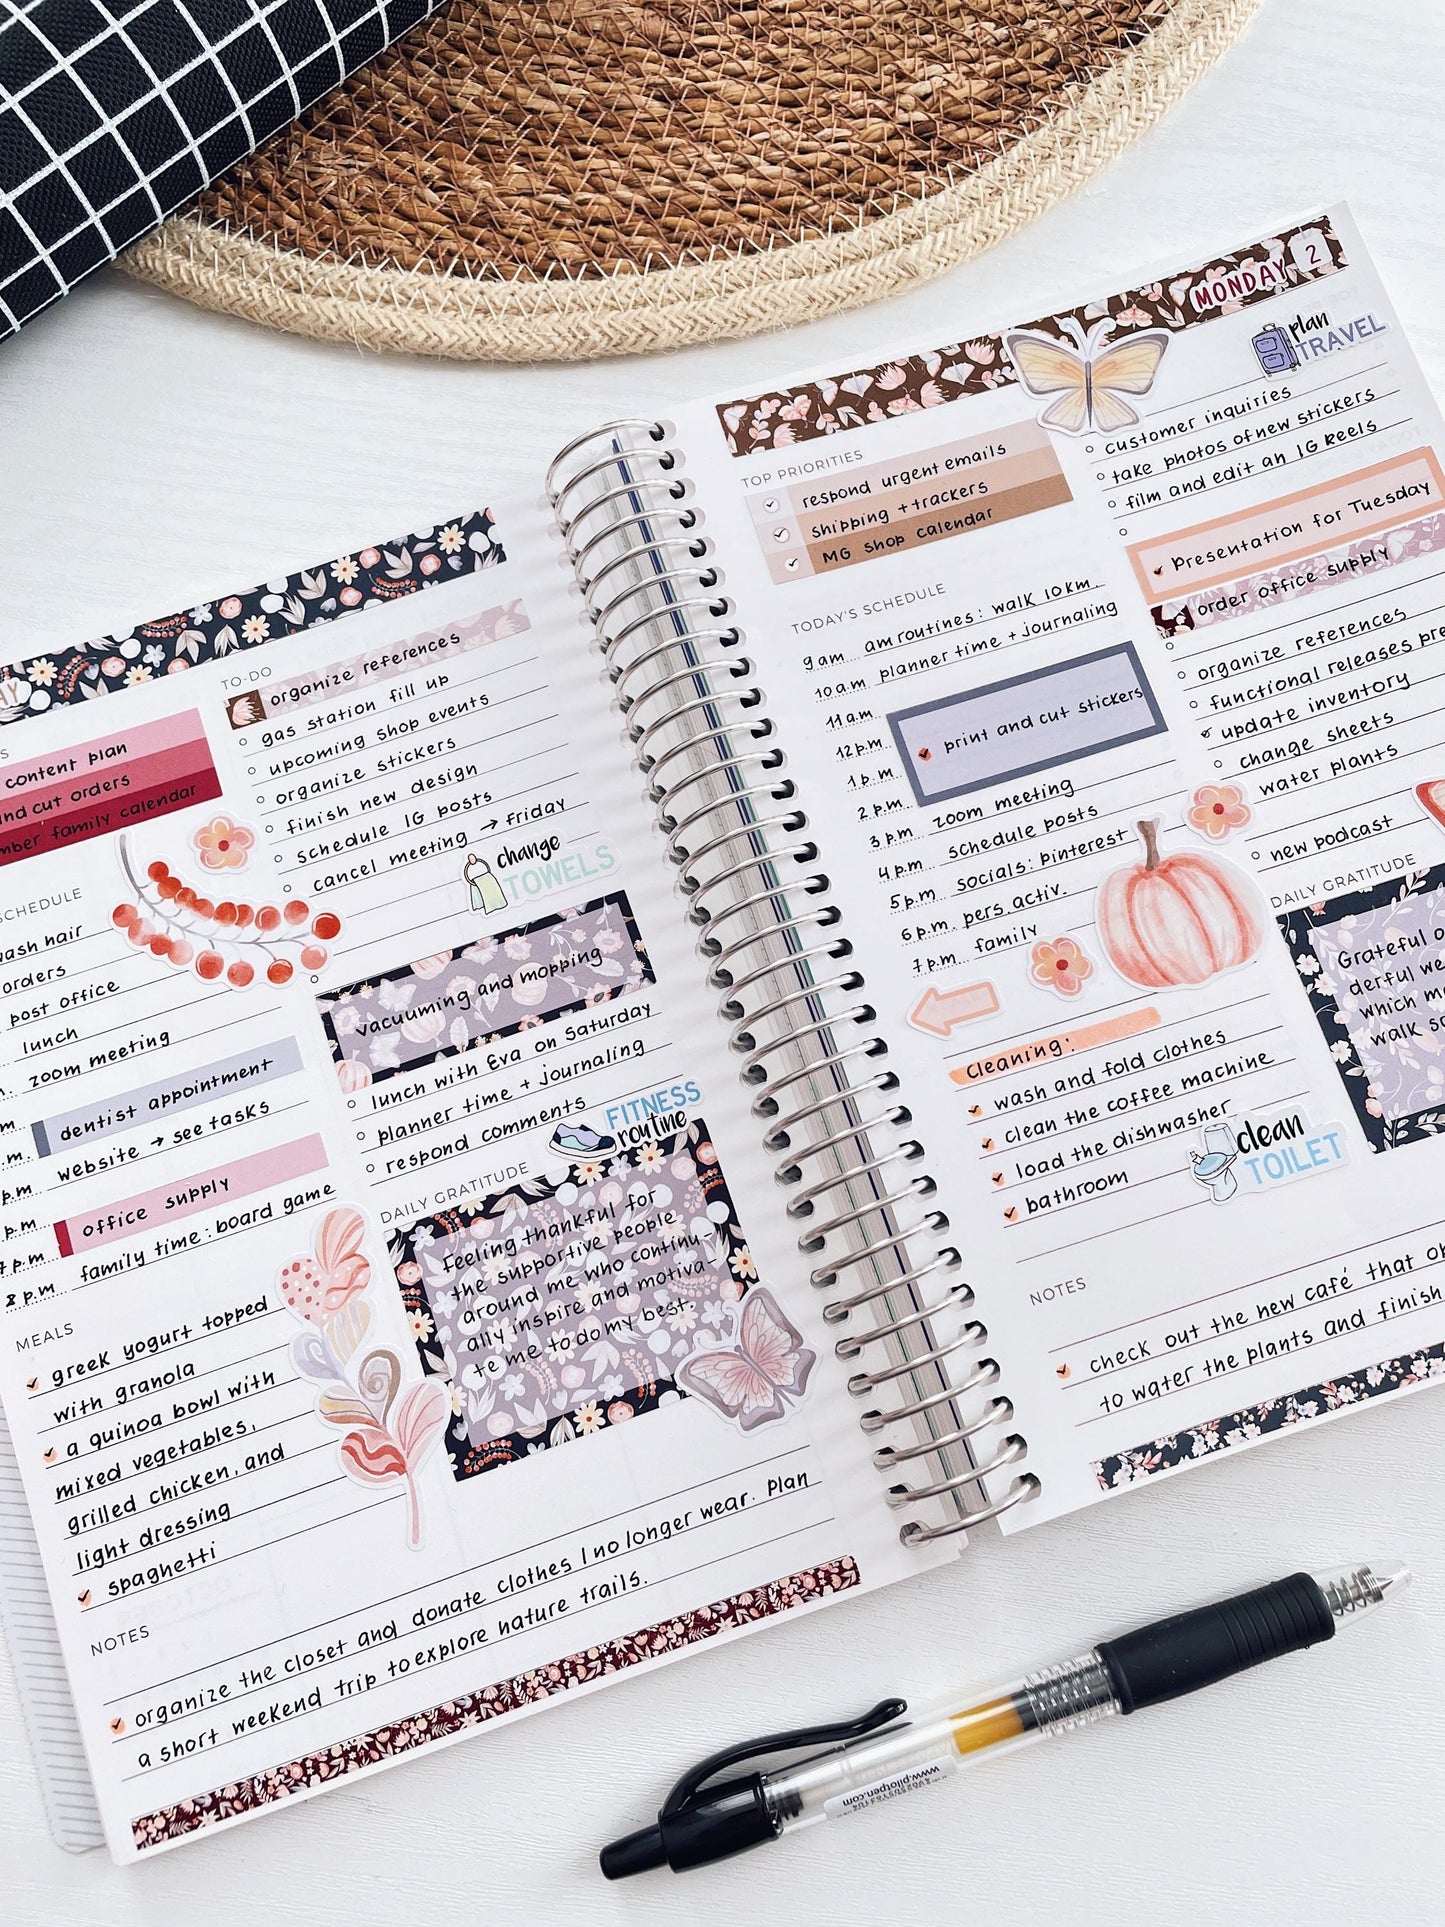 AY
S
content plan
nd cut orders
mber family calendar
SCHEDULE
ash hair
orders
post office
lunch
zoom meeting
dentist appointment
website → see tasks
office supply
family time: board game
8 p.m.
MEALS
greek yogurt topped
with granola
a quinoa bowl with
mixed vegetables,
grilled chicken, and
light dressing
spaghetti
TO-DO
organize references
gas station fill up
upcoming shop events
organize stickers
finish new design
schedule IG posts
cancel meeting → friday
change
TOWELS
vacuuming and mopping
lunch with Eva on Saturday
planner time + journaling
respond comments
FITNESS
routine
DAILY GRATITUDE
Feeling thankful for
the supportive people
around me who continu-
ally inspire and motiva-
te me to do my best.
NOTES
organize the closet and donate clothes I no longer wear. Plan
a short weekend trip to explore nature trails.
MONDAY 2
TOP PRIORITIES
respond urgent emails
shipping + trackers
MG shop calendar
TODAY'S SCHEDULE
9 am am routines: walk 10 km.
10 a.m planner time + journaling
11 a.m
12 p.m print and cut stickers
1 p.m
2 p.m
3 p.m zoom meeting
4 p.m schedule posts
5 p.m socials: pinterest
6 p.m. pers. activ.
7 p.m family
Cleaning:
wash and fold clothes
clean the coffee machine
load the dishwasher
bathroom
clean
TOILET
plan
TRAVEL
customer inquiries
take photos of new stickers
film and edit an IG Reels
Presentation for Tuesday
order office supply
organize references
functional releases pre
update inventory
change sheets
water plants
new podcast
DAILY GRATITUDE
Grateful o
derful we
which m
walk s
NOTES
check out the new café that o
to water the plants and finish
www.pilotpen.com